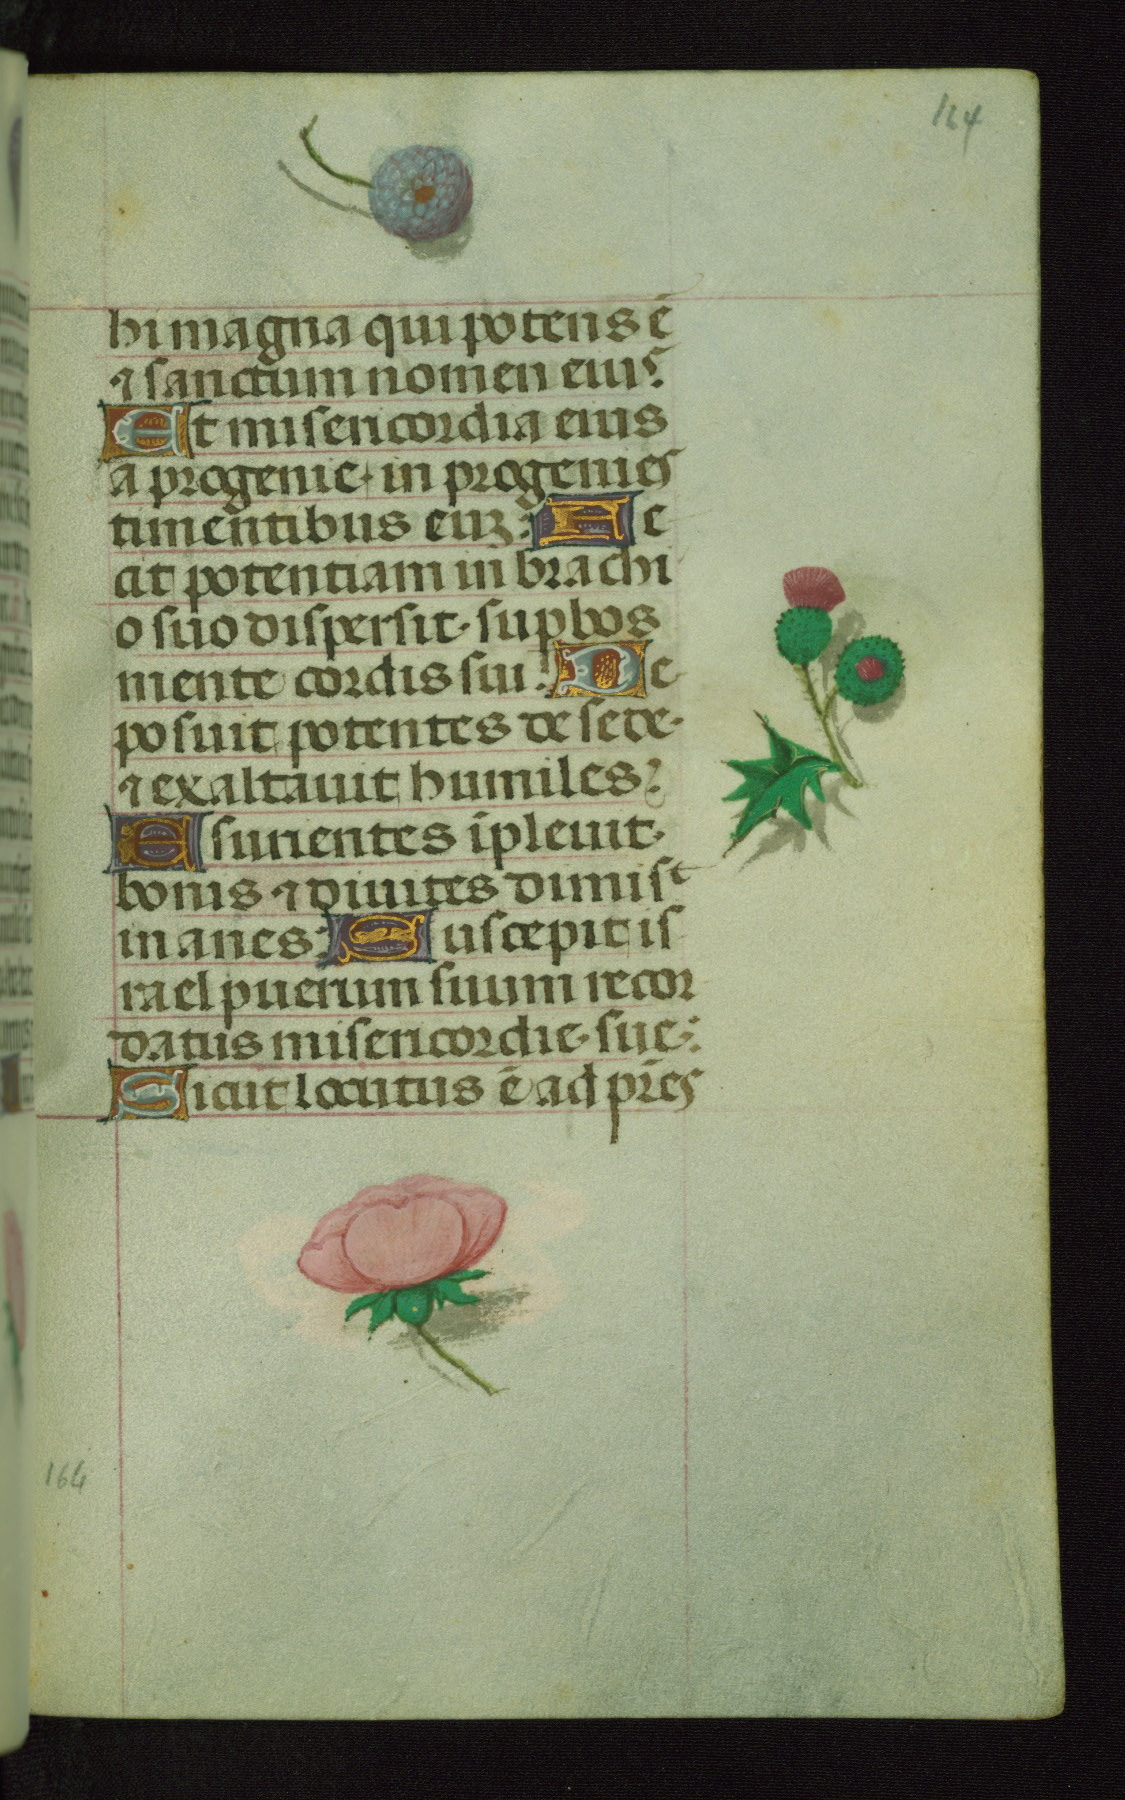 164
hi magna qui potens ē
⁊ sanctum nomen eius.
Et misericordia eius
a progenie· in progenies
timentibus euʒ: Fe
cit potentiam in brachi
o suo dispersit· supbos
mente cordis sui: De
posuit potentes de sede·
⁊ exaltauit humiles:
Esurientes īpleuit·
bonis ⁊ diuites dimisᵗ
inanes: Suscepit is
rael puerum suum recor
datus misericordie· sue:
Sicut locutus ē ad pr̄es
164